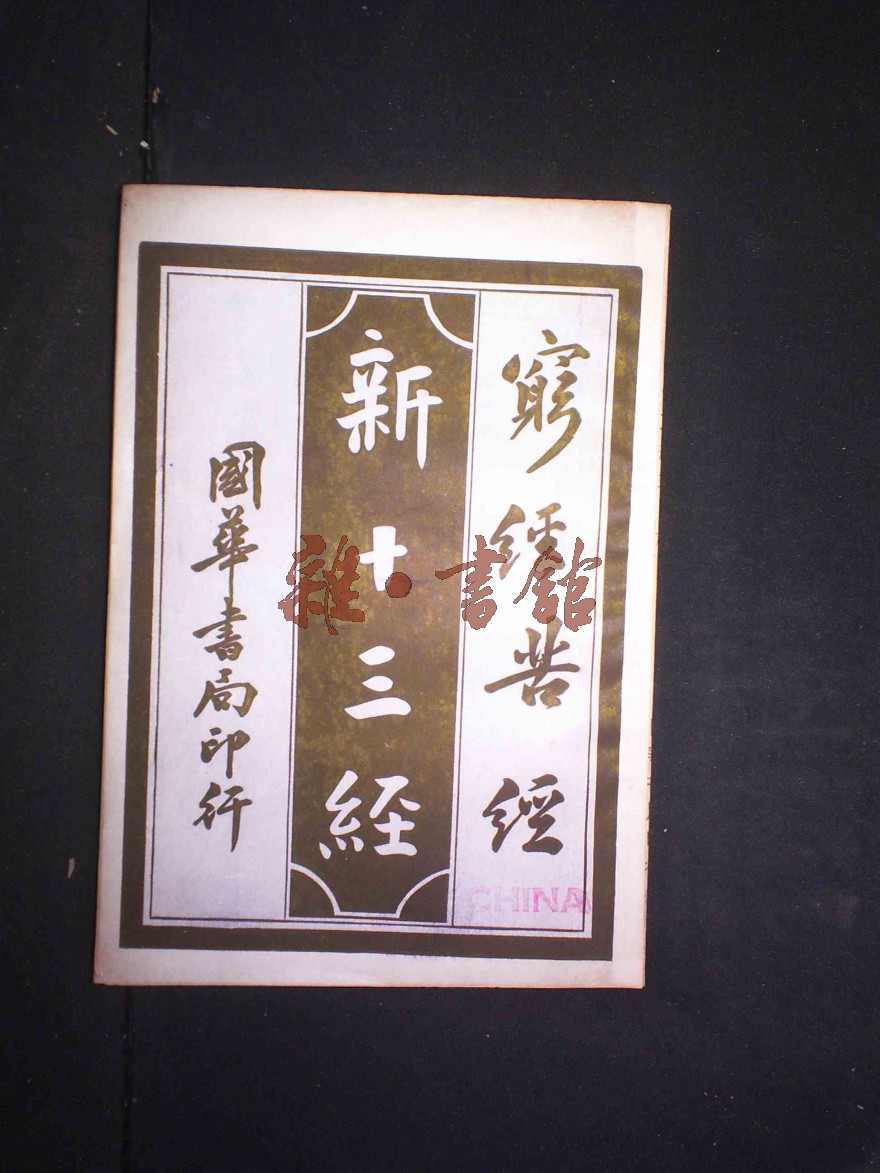 窮經苦經
新十三經
國華書局印行
雜·書館
CHINA